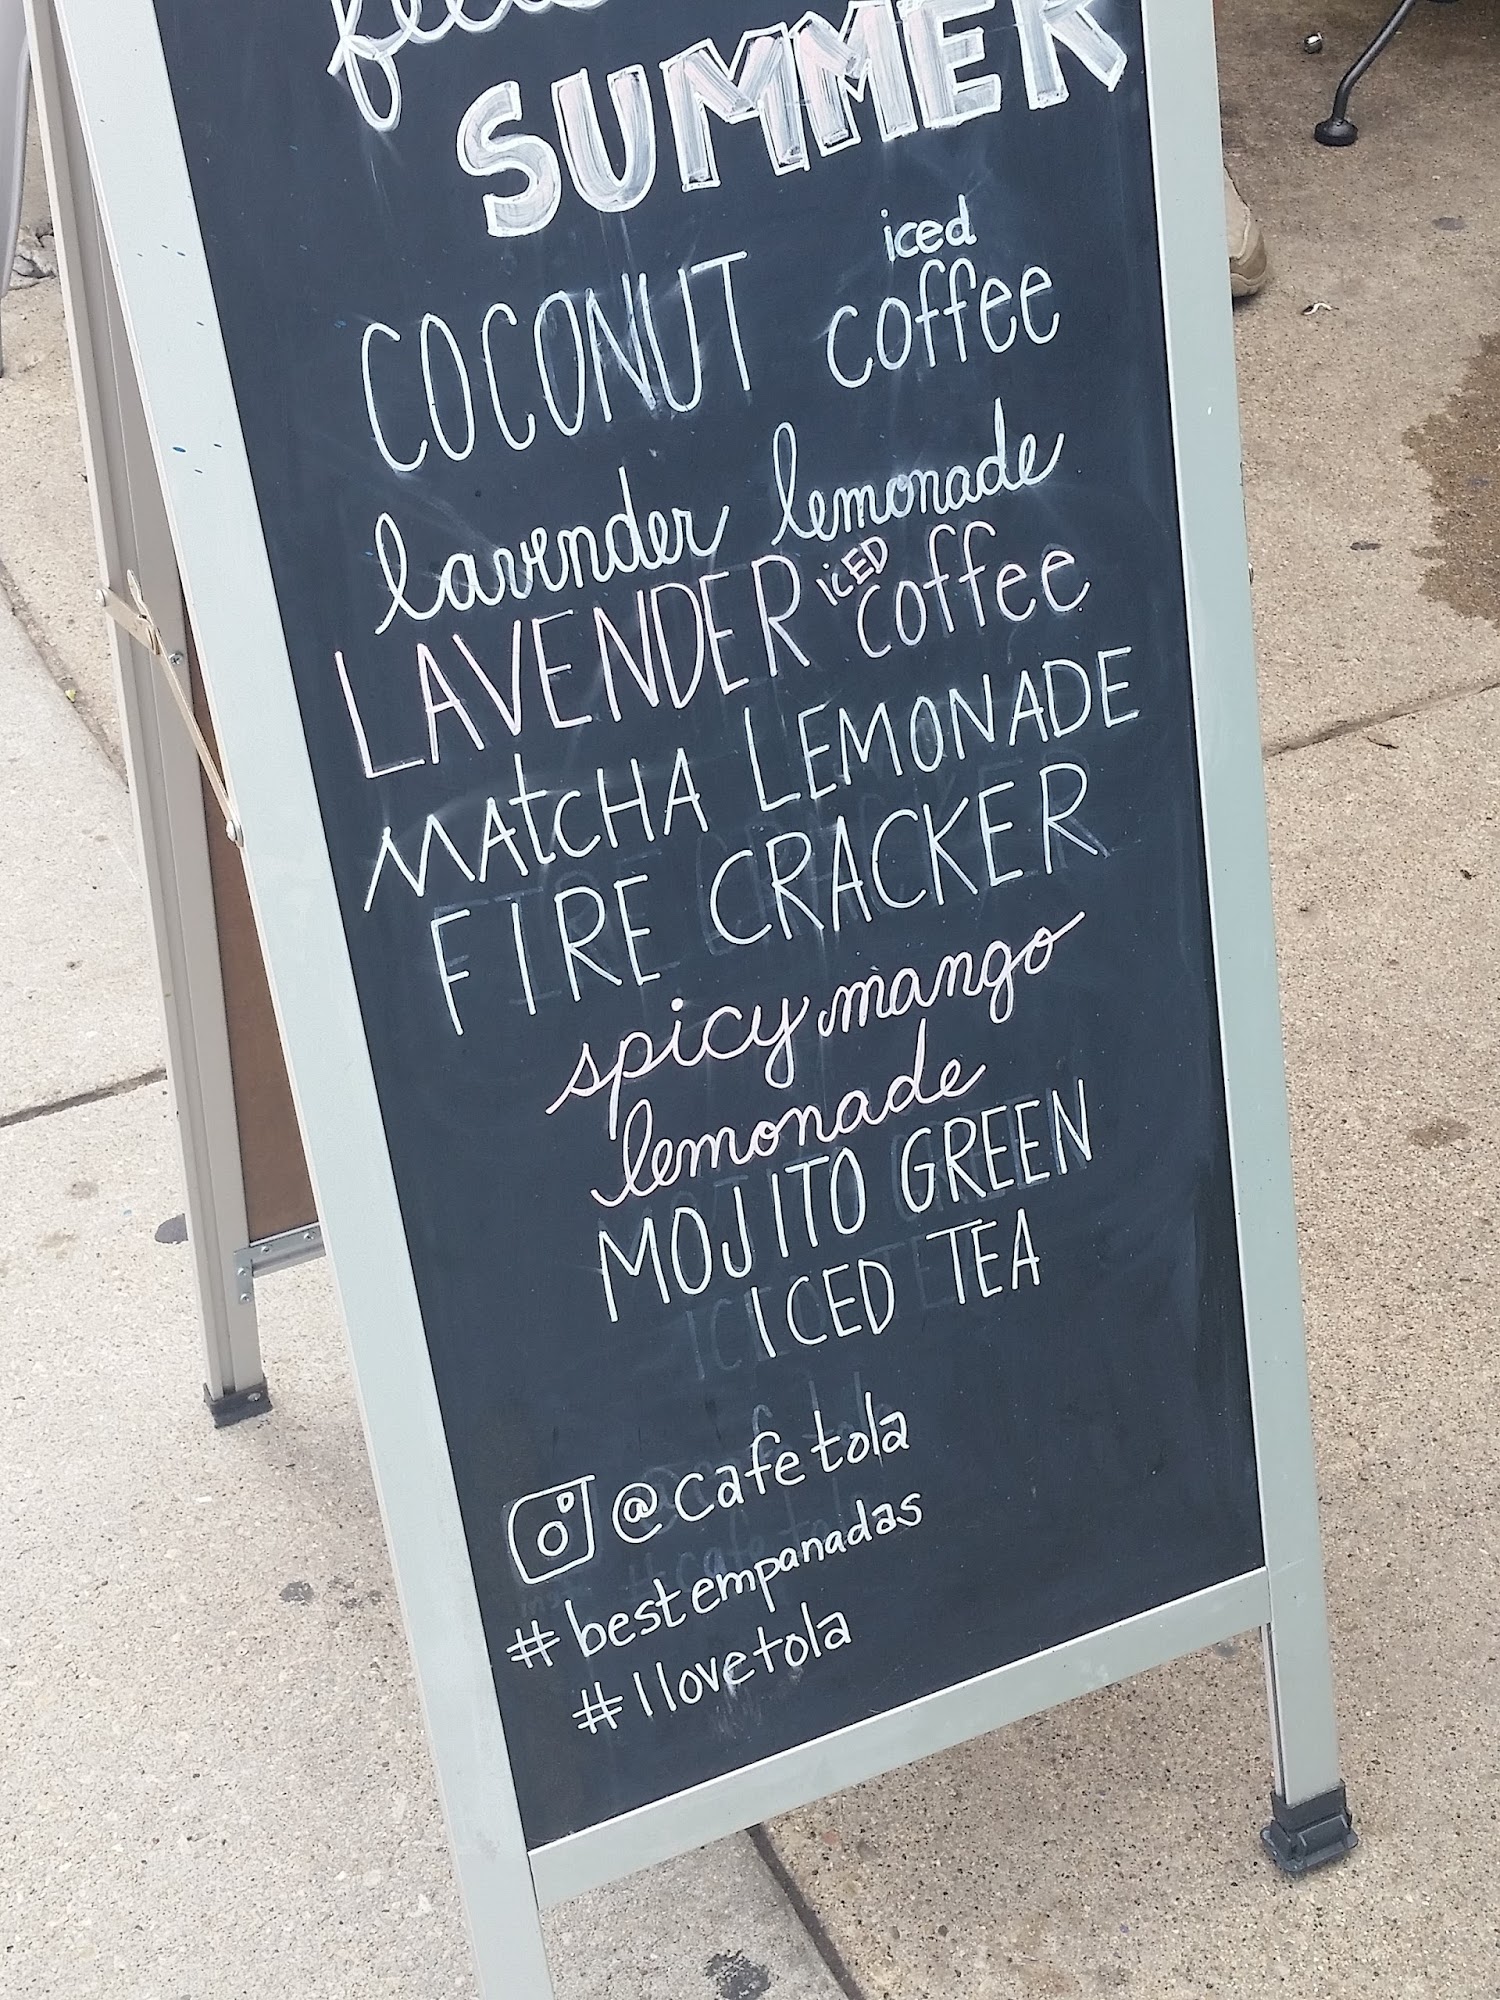 SUMMER
COCONUT iced coffee
lavender lemonade
LAVENDER iCED coffee
MAtCHA LEMONADE
FIRE CRACKER
spicy mango
lemonade
MOJITO GREEN
ICED TEA
@cafetola
#bestempanadas
#Ilovetola